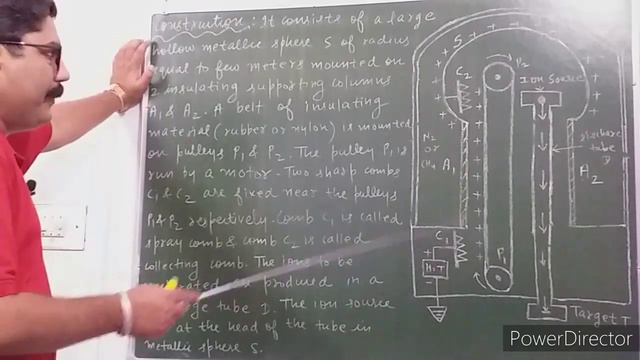 Construction:- It consists of a large
hollow metallic sphere S of radius
equal to few meters mounted on
2 insulating supporting columns
A1 & A2. A belt of insulating
material (rubber or nylon) is mounted
on pulleys P1 & P2. The pulley P1 is
run by a motor. Two sharp combs
C1 & C2 are fixed near the pulleys
P1 & P2 respectively. Comb C1 is called
spray comb & comb C2 is called
collecting comb. The ions to be
are produced in a
tube D. The ion source
at the head of the tube in
metallic sphere S.
S
C2
P2
Ion Source
N2
or
CH4
A1
discharge
tube
D
A2
C1
H.T
P1
Target T
PowerDirector